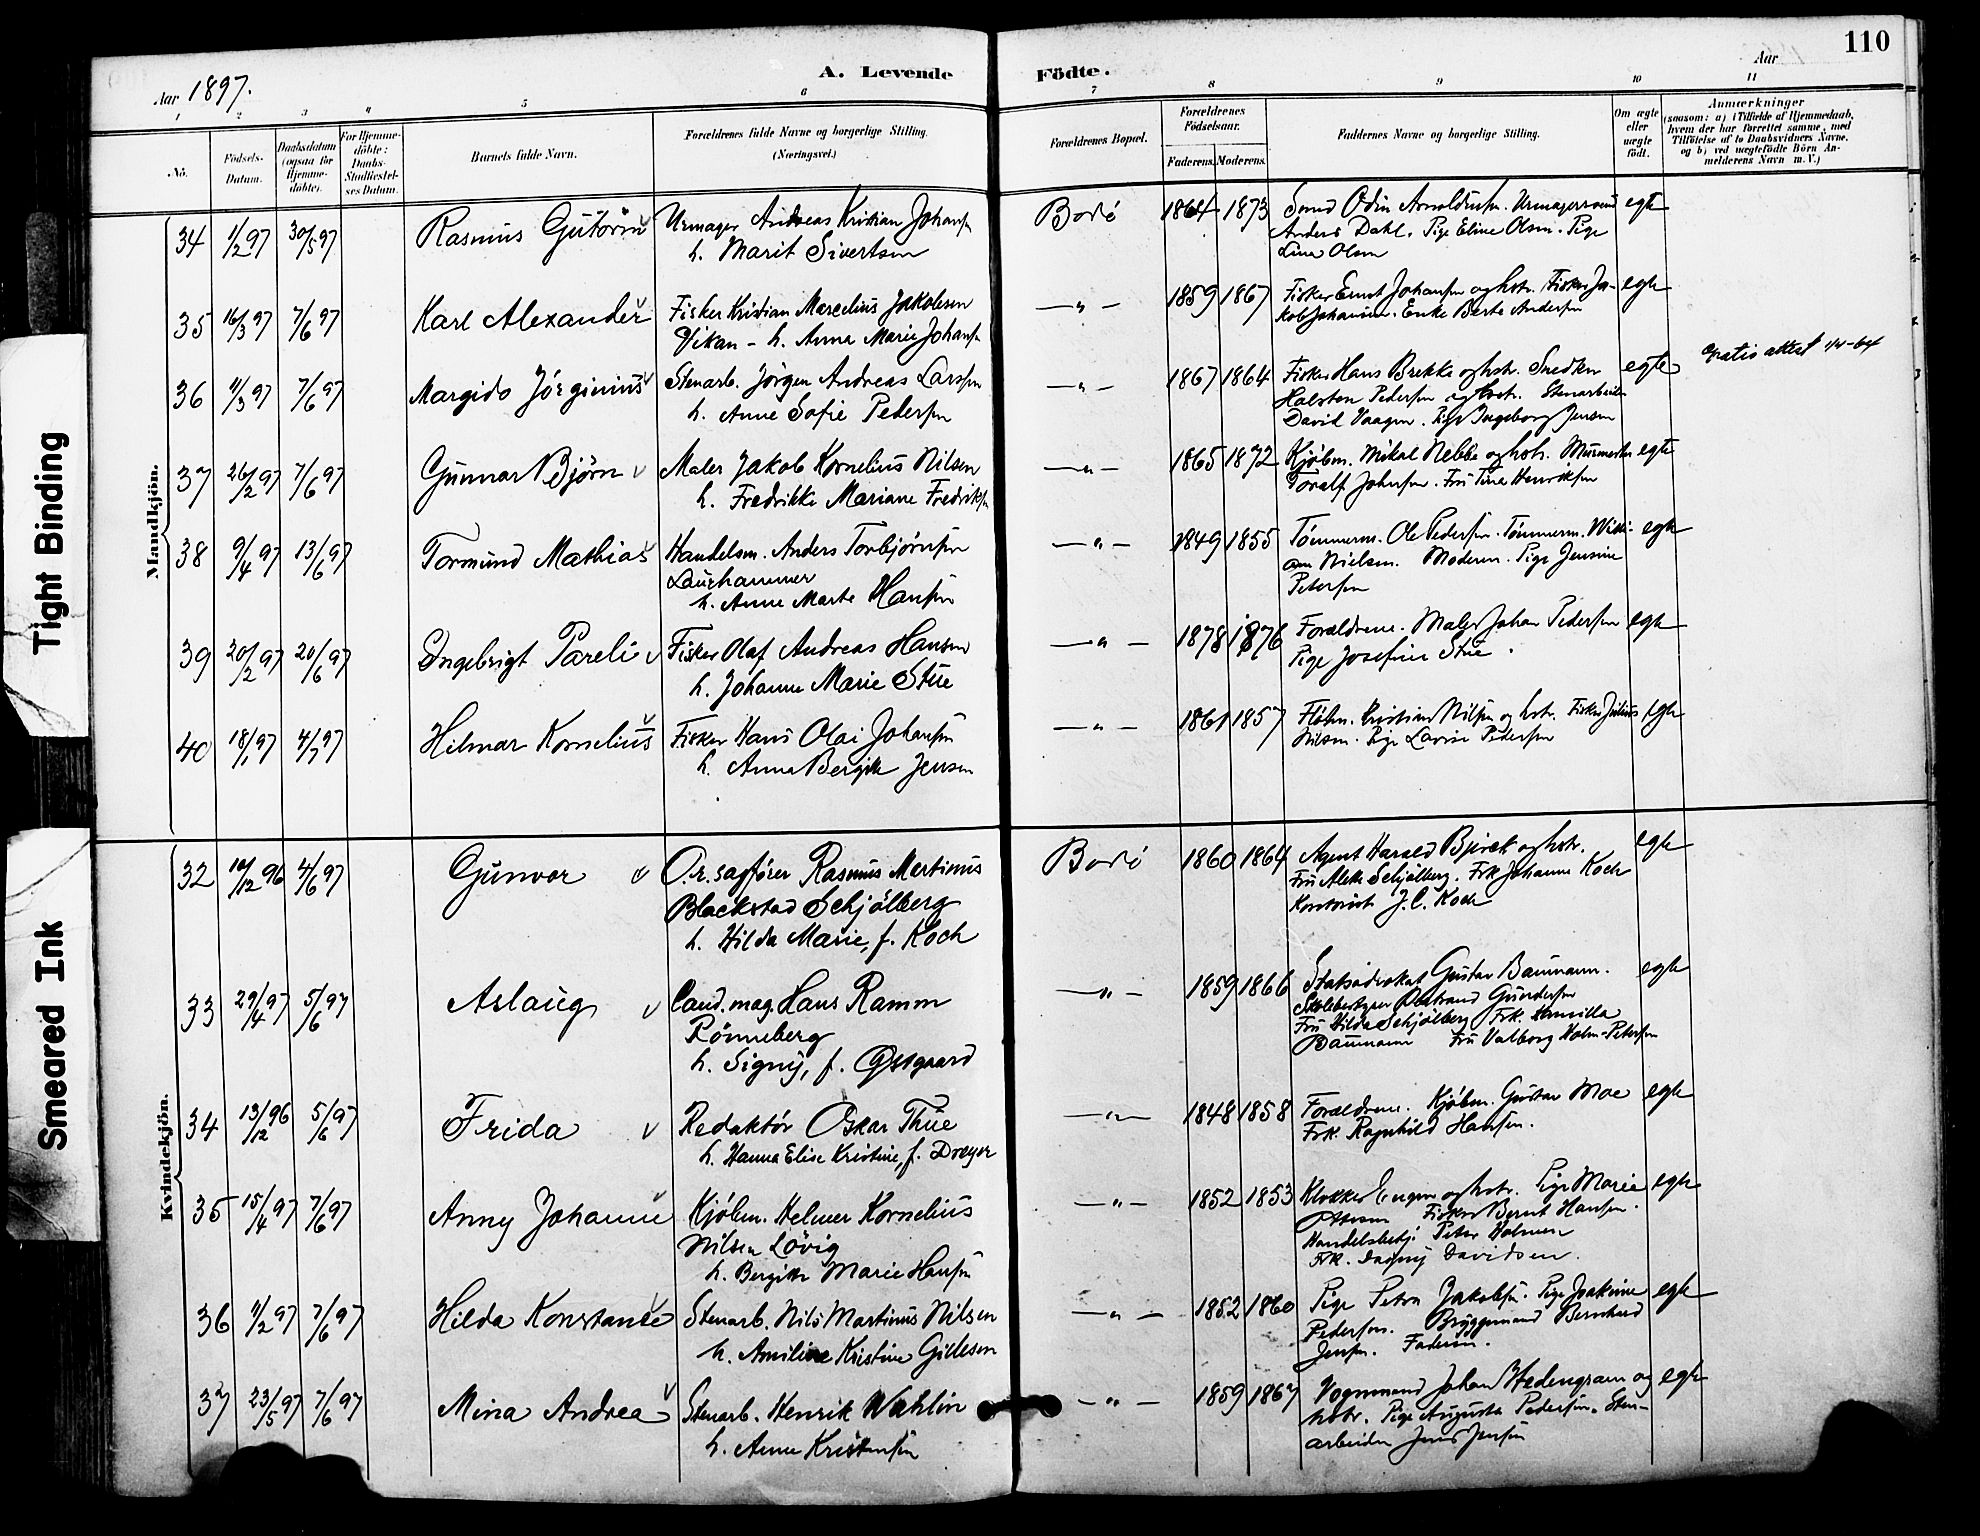 110
A. Levende Födte.
Aar 1897.
Aar
1 2 3 4 5 6 7 8 9 10 11
No.
Födsels-Datum.
Daabsdatum (ogsaa for Hjemme-döbte).
For Hjemme-döbte: Daabs-Stadfæstel-ses Datum.
Barnets fulde Navn.
Forældrenes fulde Navne og borgerlige Stilling. (Næringsvei.)
Forældrenes Bopæl.
Forældrenes Födselsaar.
Faderens. Moderens.
Faddernes Navne og borgerlige Stilling.
Om ægte eller uægte födt.
Anmærkninger
(saasom: a) i Tilfælde af Hjemmedaab,
hvem der har forrettet samme, med
Tilföielse af to Daabsvidners Navne.
og b) ved uægtefödte Börn An-
melderens Navn m. V.)
Mandkjön.
34 1/2 97 30/5 97 Rasmus Gutorm Urmager Andreas Kristian Johansen Bodø 1864 1873 Svend Odin Arnoldsen. Urmagersvend egte
h. Marit Sivertsen Anders Dahl. Pige Eline Olsen. Pige
Lina Olsen
35 16/3 97 7/6 97 Karl Alexander Fisker Kristian Marcelius Jakobsen —„— 1859 1867 Fisker Ernst Johansen og hstr. Fisker Ja- egte
Vikan - h. Anna Marie Johansen kob Johansen. Enke Berte Andersen
36 11/3 97 7/6 97 Margido Jörginius Stenarb. Jörgen Andreas Larsen —„— 1867 1864 Fisker Hans Brekke og hstr. Snedker egte gratis attest
h. Anne Sofie Pedersen Halsten Pedersen og hstr. Stenarbeider
David Vaagen. Pige Ingeborg Jensen
37 26/2 97 7/6 97 Gunnar Björn Maler Jakob Kornelius Nilsen —„— 1865 1872 Kjøbm. Mikal Nebbe og hstr. Murmester egte
h. Fredrikke Mariane Fredriksen Toralf Johnsen. Fru Tina Henriksen
38 9/4 97 13/6 97 Tormund Mathias Handelsm. Anders Torbjørnsen —„— 1849 1855 Tømmerm. Ole Pedersen. Tømmerm. Willi- egte
Laushammer am Nielsen. Moderen. Pige Jensine
h. Anne Marte Hansen Petersen
39 20/2 97 20/6 97 Ingebrigt Pareli Fisker Olaf Andreas Hansen —„— 1878 1876 Forældrene. Maler Johan Pedersen egte
h. Johanne Marie Stue Pige Josefine Stue.
40 18/1 97 4/7 97 Hilmar Kornelius Fisker Hans Olai Johansen —„— 1861 1857 Kristian Nilsen og hstr. Fisker Julius egte
h. Anna Bergitte Jensen Nilsen. Pige Lovise Pedersen
Kvindekjön.
32 10/12 96 4/6 97 Gunvor O.r.sagfører Rasmus Martinus Bodø 1860 1864 Agent Harald Bjerck og hstr. egte
Blackstad Schjölberg Fru Aleth Schjölberg. Frk Johanne Koch
h. Hilda Marie, f. Koch Kontorist J.C. Koch
33 29/4 97 5/6 97 Aslaug Cand. mag. Hans Ramm —„— 1859 1866 Statsadvokat Gustav Baumann. egte
Rönneberg Skolebestyrer Gundersen
h. Signy, f. Østgaard Fru Hilda Schjölberg Frk. Hansilla
Baumann Fru Valborg Holm-Petersen
34 13/12 96 5/6 97 Frida Redaktør Oskar Thue —„— 1848 1858 Forældrene. Kjøbm. Gustav Moe egte
h. Hanna Elise Kristine, f. Dreyer Frk. Ragnhild Hansen.
35 15/4 97 7/6 97 Anny Johanne Kjøbm. Helmer Kornelius —„— 1852 1853 Klokker og hstr. Pige Marie egte
Nilsen Lövig Fisker Bernt Hansen.
h. Bergitte Marie Hansen Handelsbetj. Peter Holmen
Frk. Dagny Davidsen.
36 11/2 97 7/6 97 Hilda Konstanse Stenarb. Nils Martinus Nilsen —„— 1852 1860 Pige Petra Jakobsen. Pige Joakime egte
h. Amiline Kristine Gillesen Pedersen. Bryggemand Bernhard
Jensen. Faderen.
37 23/5 97 7/6 97 Mina Andrea Stenarb. Henrik Wahlin —„— 1859 1867 Vognmand Johan Hedengran og egte
h. Anne Kristensen hstr. Pige Augusta Pedersen. Sten-
arbeider Jens Jensen
Tight Binding
Smeared Ink